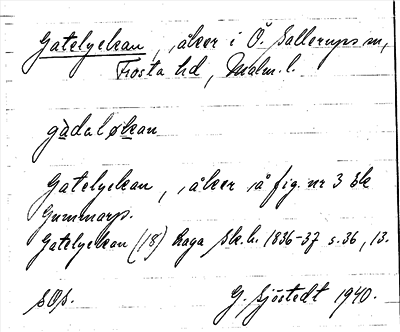 Gatelyckan, åker i Ö. Sallerups sn,
Frosta hd, Malm. l.
gàdaløkan
Gatelyckan, åker å fig. nr 3 Sk
Gummarp.
Gatelyckan (18) Laga sk.h. 1836-37 s. 36, 13.
SOs.
G. Sjöstedt 1940.